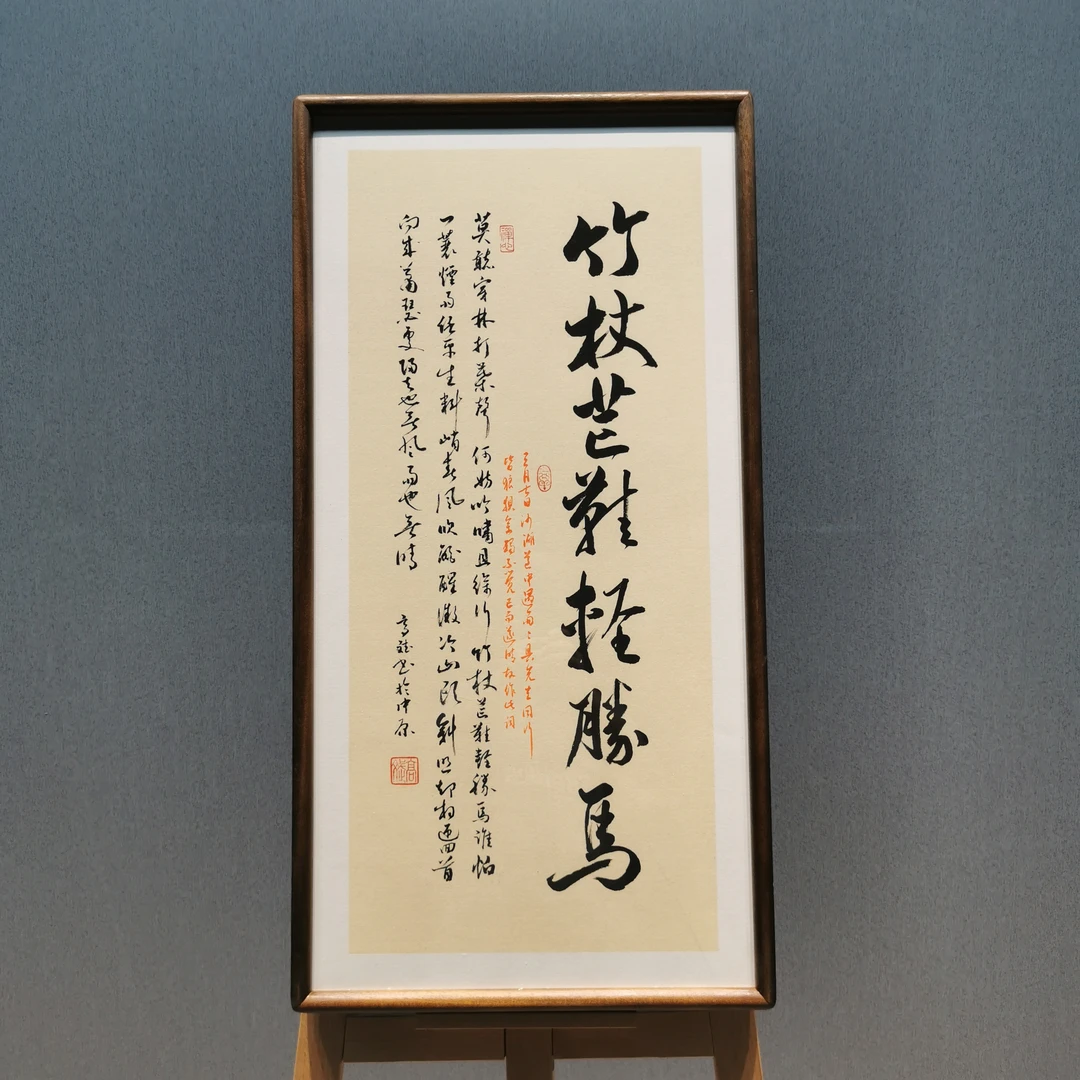 竹杖芒鞋輕勝馬
三月七日沙湖道中遇雨〻具先去同行
皆狼狽余獨不覺已而遂晴故作此詞
莫聽穿林打葉聲何妨吟嘯且徐行竹杖芒鞋輕勝馬誰怕
一蓑煙雨任平生料峭春風吹酒醒微冷山頭斜照却相迎回首
向來蕭瑟處歸去也無風雨也無晴
高書於中原